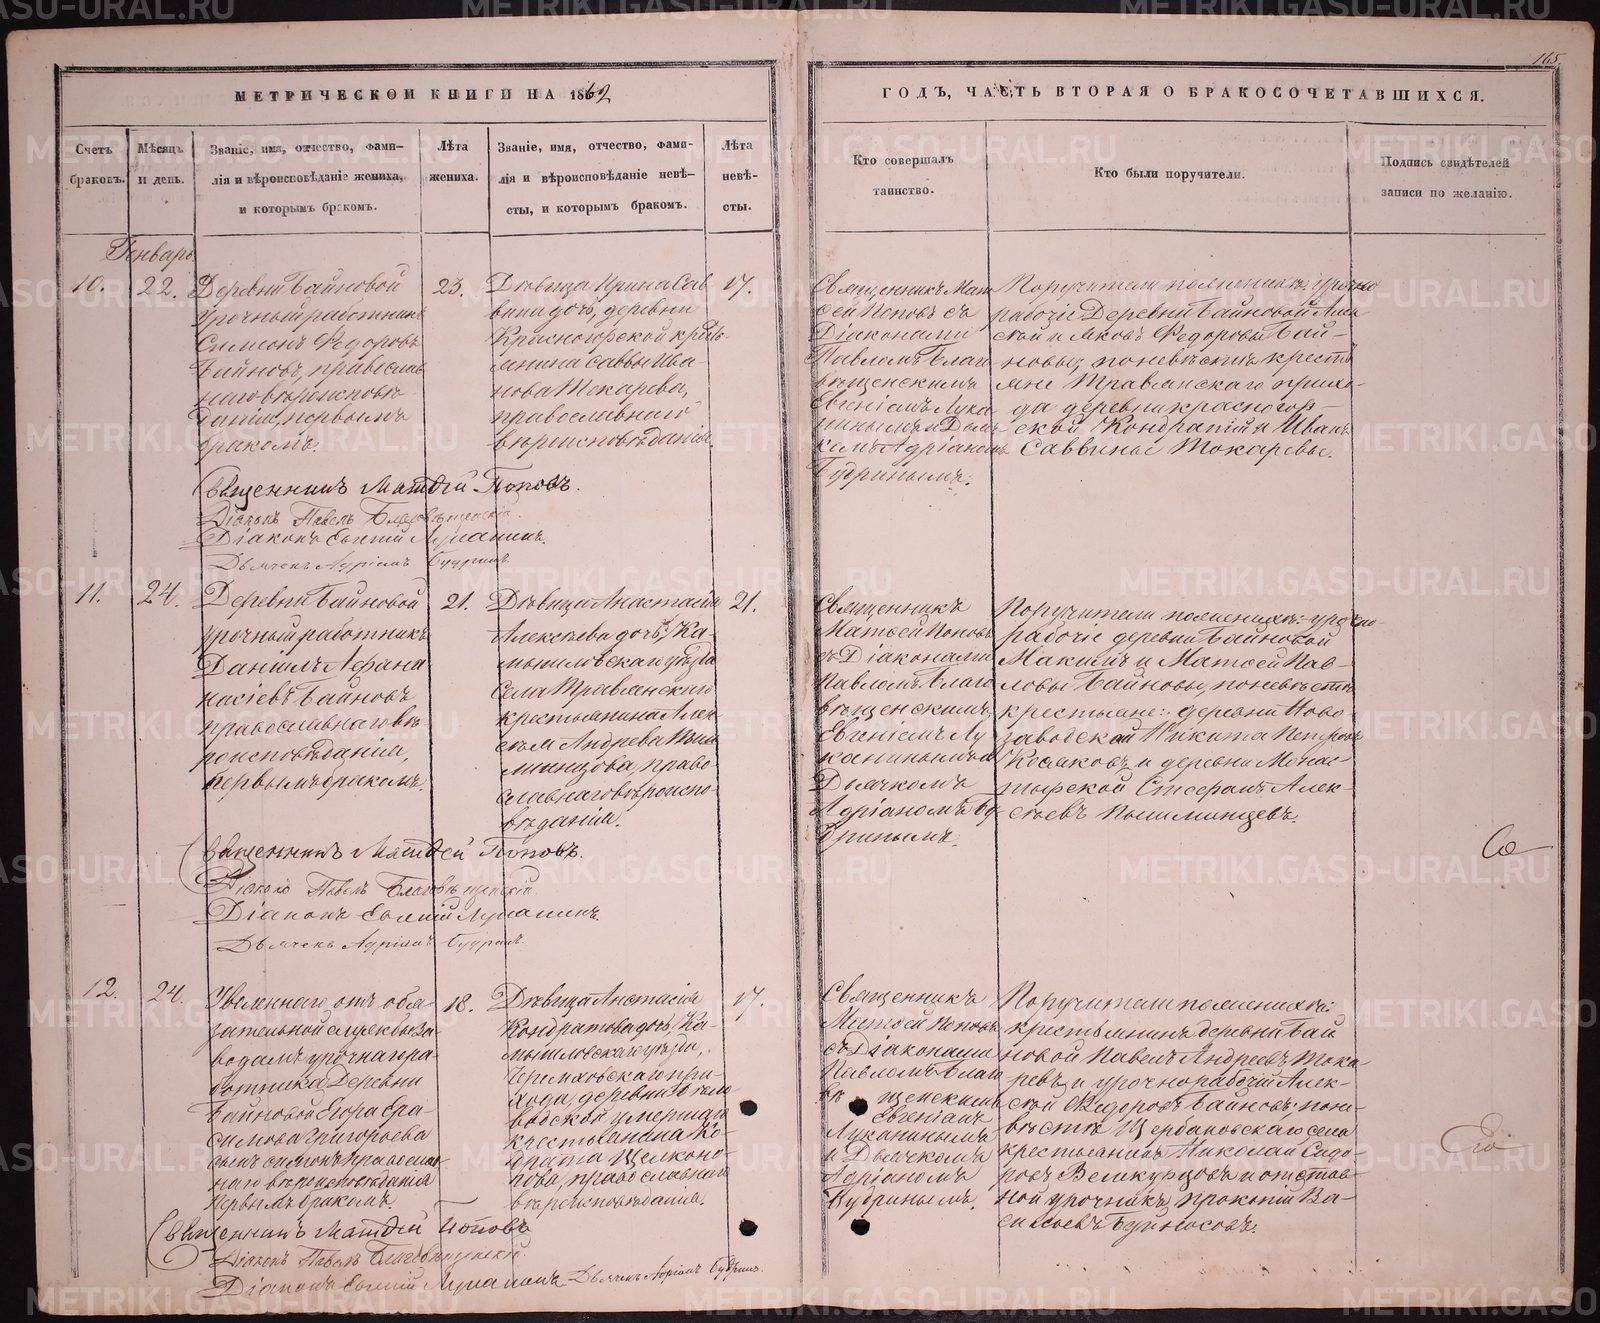 165.
МЕТРИЧЕСКОЙ КНИГИ НА 1862
ГОДЪ, ЧАСТЬ ВТОРАЯ О БРАКОСОЧЕТАВШИХСЯ.
Счетъ
браковъ.
Мѣсяцъ
и день.
Званіе, имя, отчество, фами-
лія и вѣроисповѣданіе жениха,
и которымъ бракомъ.
Лѣта
жениха.
Званіе, имя, отчество, фами-
лія и вѣроисповѣданіе невѣ-
сты, и которымъ бракомъ.
Лѣта
невѣ-
сты.
Кто совершалъ
таинство.
Кто были поручители.
Подпись свидѣтелей
записи по желанію.
Генварь
10.
22.
Деревни Байновой
урочный работникъ
Симеонъ Федоровъ
Байновъ, православ
наго вѣроисповѣ
данія, первымъ
бракомъ.
23.
Дѣвица Ирина Сав
вина дочь, деревни
Красногорской крестья-
янина Саввы Ива-
нова Токарева,
православнаго
вѣроисповѣданія.
17.
Священникъ Мат
ѳей Поповъ съ
Діаконами
Павломъ Благо
вѣщенскимъ
Евгеніемъ Лука
нинымъ и Дьяч
комъ Адріаномъ
Будринымъ.
Поручители по женихѣ: урочно
рабочіе Деревни Байновой Алек
сѣй и Яковъ Федоровы Бай-
новы, по невѣстѣ крестья
яне Травянскаго прихо-
да деревни Красногор-
ской Кондратій и Иванъ
Саввины Токаревы.
Священникъ Матѳей Поповъ.
Діаконъ Павелъ Благовѣщенскій.
Діаконъ Евгеній Луканинъ.
Дьячекъ Адріанъ Будринъ.
11.
24.
Деревни Байновой
урочный работникъ
Даніилъ Афана
насіевъ Байновъ
православнаго вѣ
роисповѣданія,
первымъ бракомъ.
21.
Дѣвица Анастасія
Алексѣева дочь, Ка-
мышловскаго уѣзда
Села Травянскаго
крестьянина Алек
сѣя Андреева Пыш
минцова, право
славнаго вѣроиспо-
вѣданія.
21.
Священникъ
Матѳей Поповъ
съ Діаконами
Павломъ Благо
вѣщенскимъ,
Евгеніемъ Лу
канинымъ и
Дьячкомъ
Адріаномъ Бу
дринымъ.
Поручители по женихѣ: урочно
рабочіе деревни Байновой
Макимъ и Матѳей Пав-
ловы Байновы, по невѣстѣ
крестьяне: деревни Ново-
заводской Никита Петровъ
Косяковъ и деревни Монас-
тырской Стефанъ Алек-
сѣевъ Пышминцевъ.
Священникъ Матѳей Поповъ.
Діаконъ Павелъ Благовѣщенскій
Діаконъ Евгеній Луканинъ.
Дьячекъ Адріанъ Будринъ.
12.
24.
Уволеннаго отъ обя-
зательной службы за
водамъ урочнаго ра-
ботника Деревни
Байновой Егора Гра
симова Григорьева
сынъ Симонъ православ-
наго вѣроисповѣданія
первымъ бракомъ.
18.
Дѣвица Анастасія
Кондратова дочь, Ка-
мышловскаго уѣзда,
Черемховскаго при-
хода, деревни
водской умершаго
крестьянина Ко-
драта Щелконо-
гова, православнаго
вѣроисповѣданія.
17.
Священникъ
Матѳей Поповъ
съ Діаконами
Павломъ Благо
вѣщенскимъ
Евгеніемъ
Луканинымъ
и Дьячкомъ
Адріаномъ
Будринымъ.
Поручители по женихѣ:
крестьянинъ деревни Бай
новой Павелъ Андреевъ Тока-
ревъ и урочнорабочій Алек-
сѣй Федоровъ Байновъ: по не-
вѣстѣ Щербаковскаго села
крестьянинъ Николай Сидо-
ровъ Великурцовъ и отстав-
ной урочникъ Прокопій Ва-
сильевъ Буйносовъ.
Священникъ Матѳей Поповъ
Діаконъ Павелъ Благовѣщенскій.
Діаконъ Евгеній Луканинъ Дьячекъ Адріанъ Будринъ.
METRIKI.GASO-URAL.RU